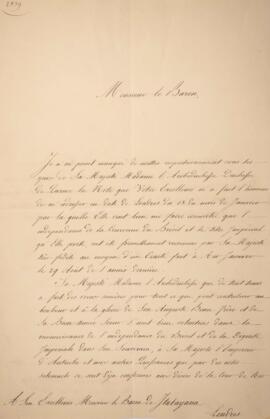 Monsieur le Baron,
Je n'ai point manqué de mettre respectueusement sous les
yeux de Sa Majesté Madame l'Archiduchesse Duchesse
de Parme la Note que Votre Excellence m'a fait l'honneur
de m'adresser en date de Londres du 18 du mois de Janvier
par laquelle Elle veut bien me faire connaître que
l'indépendance de la Couronne du Brésil et le titre Impérial
qu'Elle porte ont été formellement reconnus par Sa Majesté
très fidèle au moyen d'un Traité fait à Rio Janeiro
le 29 Août de l'année dernière.
Sa Majesté Madame l'Archiduchesse que de tout tems
a fait des vœux sincères pour tout ce qui peut contribuer au
bonheur et à la gloire de Son Auguste Beau frère et de
Sa Bien aimée Soeur
reconnaissance de l'indépendance du Brésil et de la Dignité
Impériale dans Son Souverain, à Sa Majesté l'Empereur
d'Autriche et aux autres Puissances qui par des actes
se sont déjà conformés aux désirs de la Cour de Rio
A Son Excellence Monsieur le Baron de Itabayana
Londres